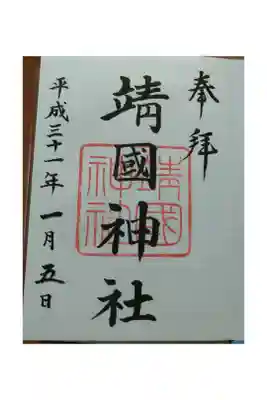 奉拝
靖國神社
平成三十一年一月五日
靖國神社